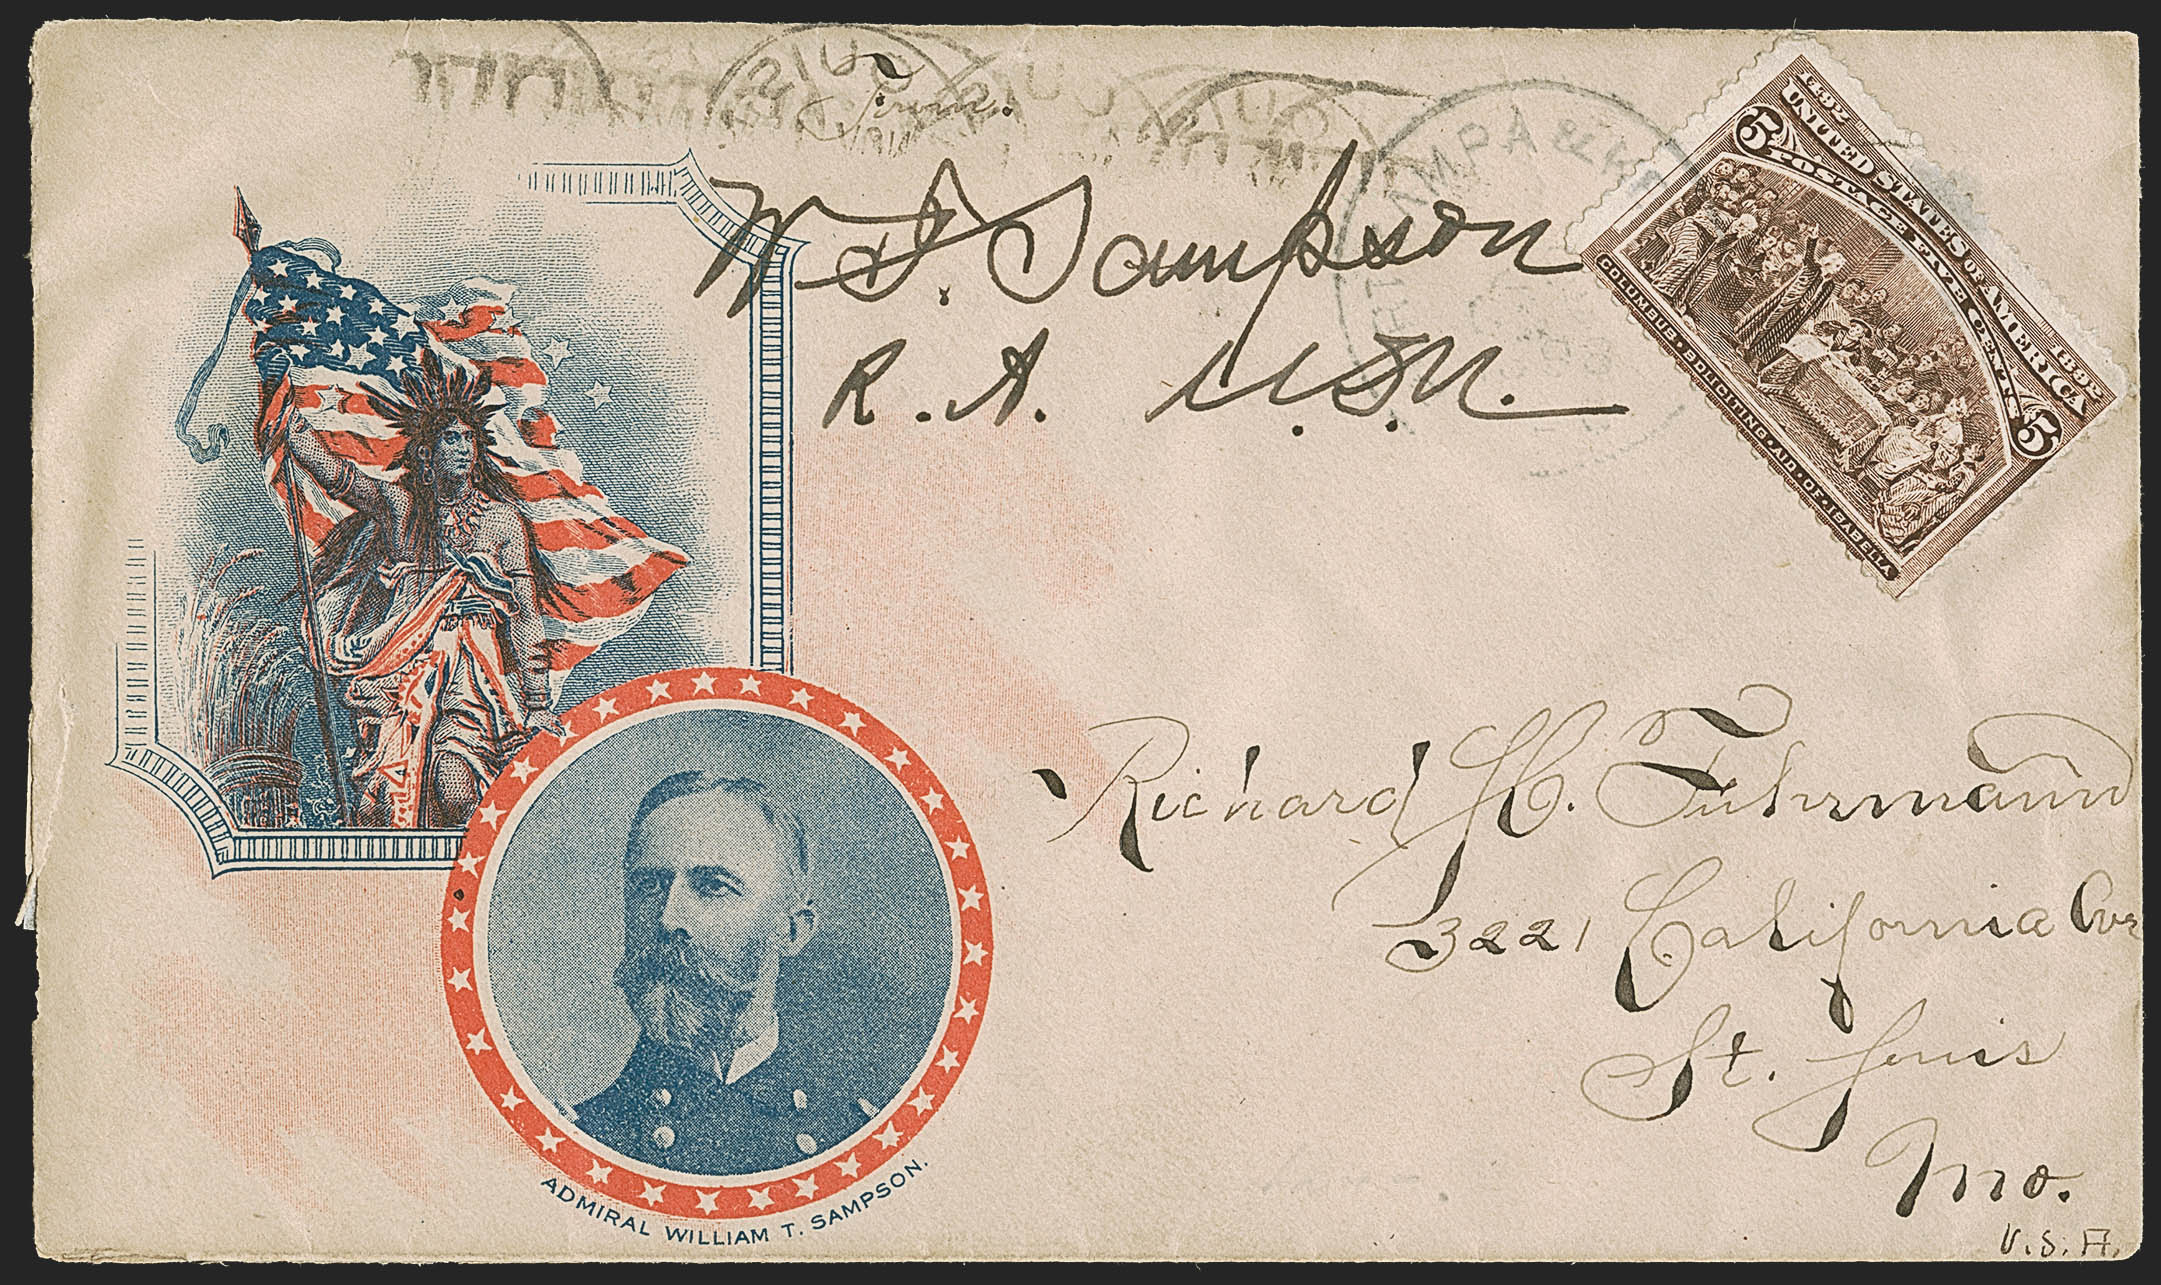 From.
W. T. Sampson
R. A. U.S.N.
TAMPA
1492
UNITED STATES OF AMERICA
1892
5 POSTAGE FIVE CENTS 5
COLUMBUS · SOLICITING · AID · OF · ISABELLA
Richard H. Fuhrmann
3221 California Ave
St. Louis
Mo.
U.S.A.
ADMIRAL WILLIAM T. SAMPSON.